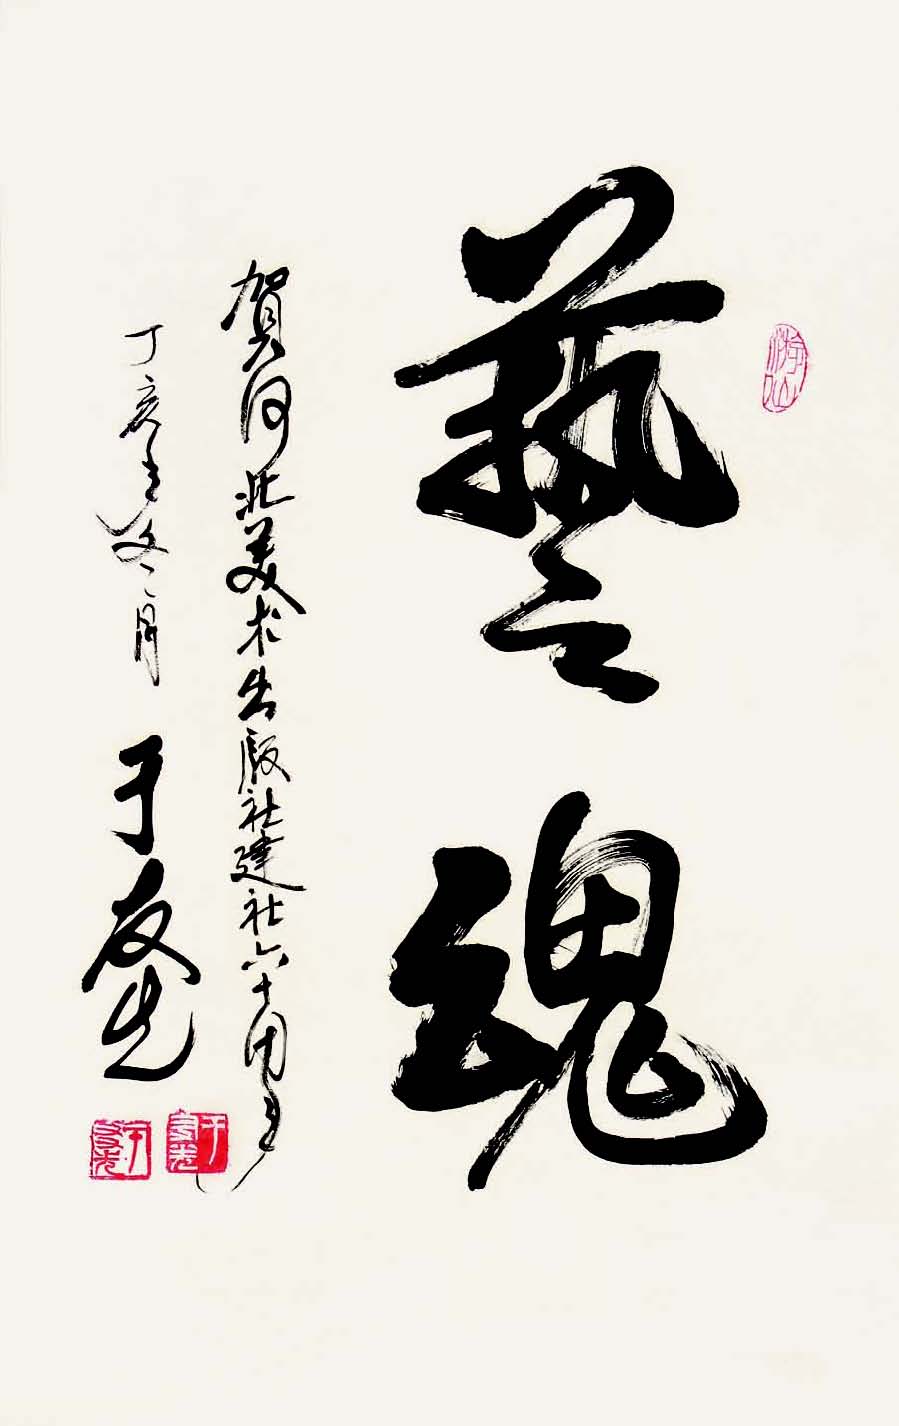 藝魂
賀河北美术出版社建社六十周年
丁亥年冬月 于友先
于友先
于友先